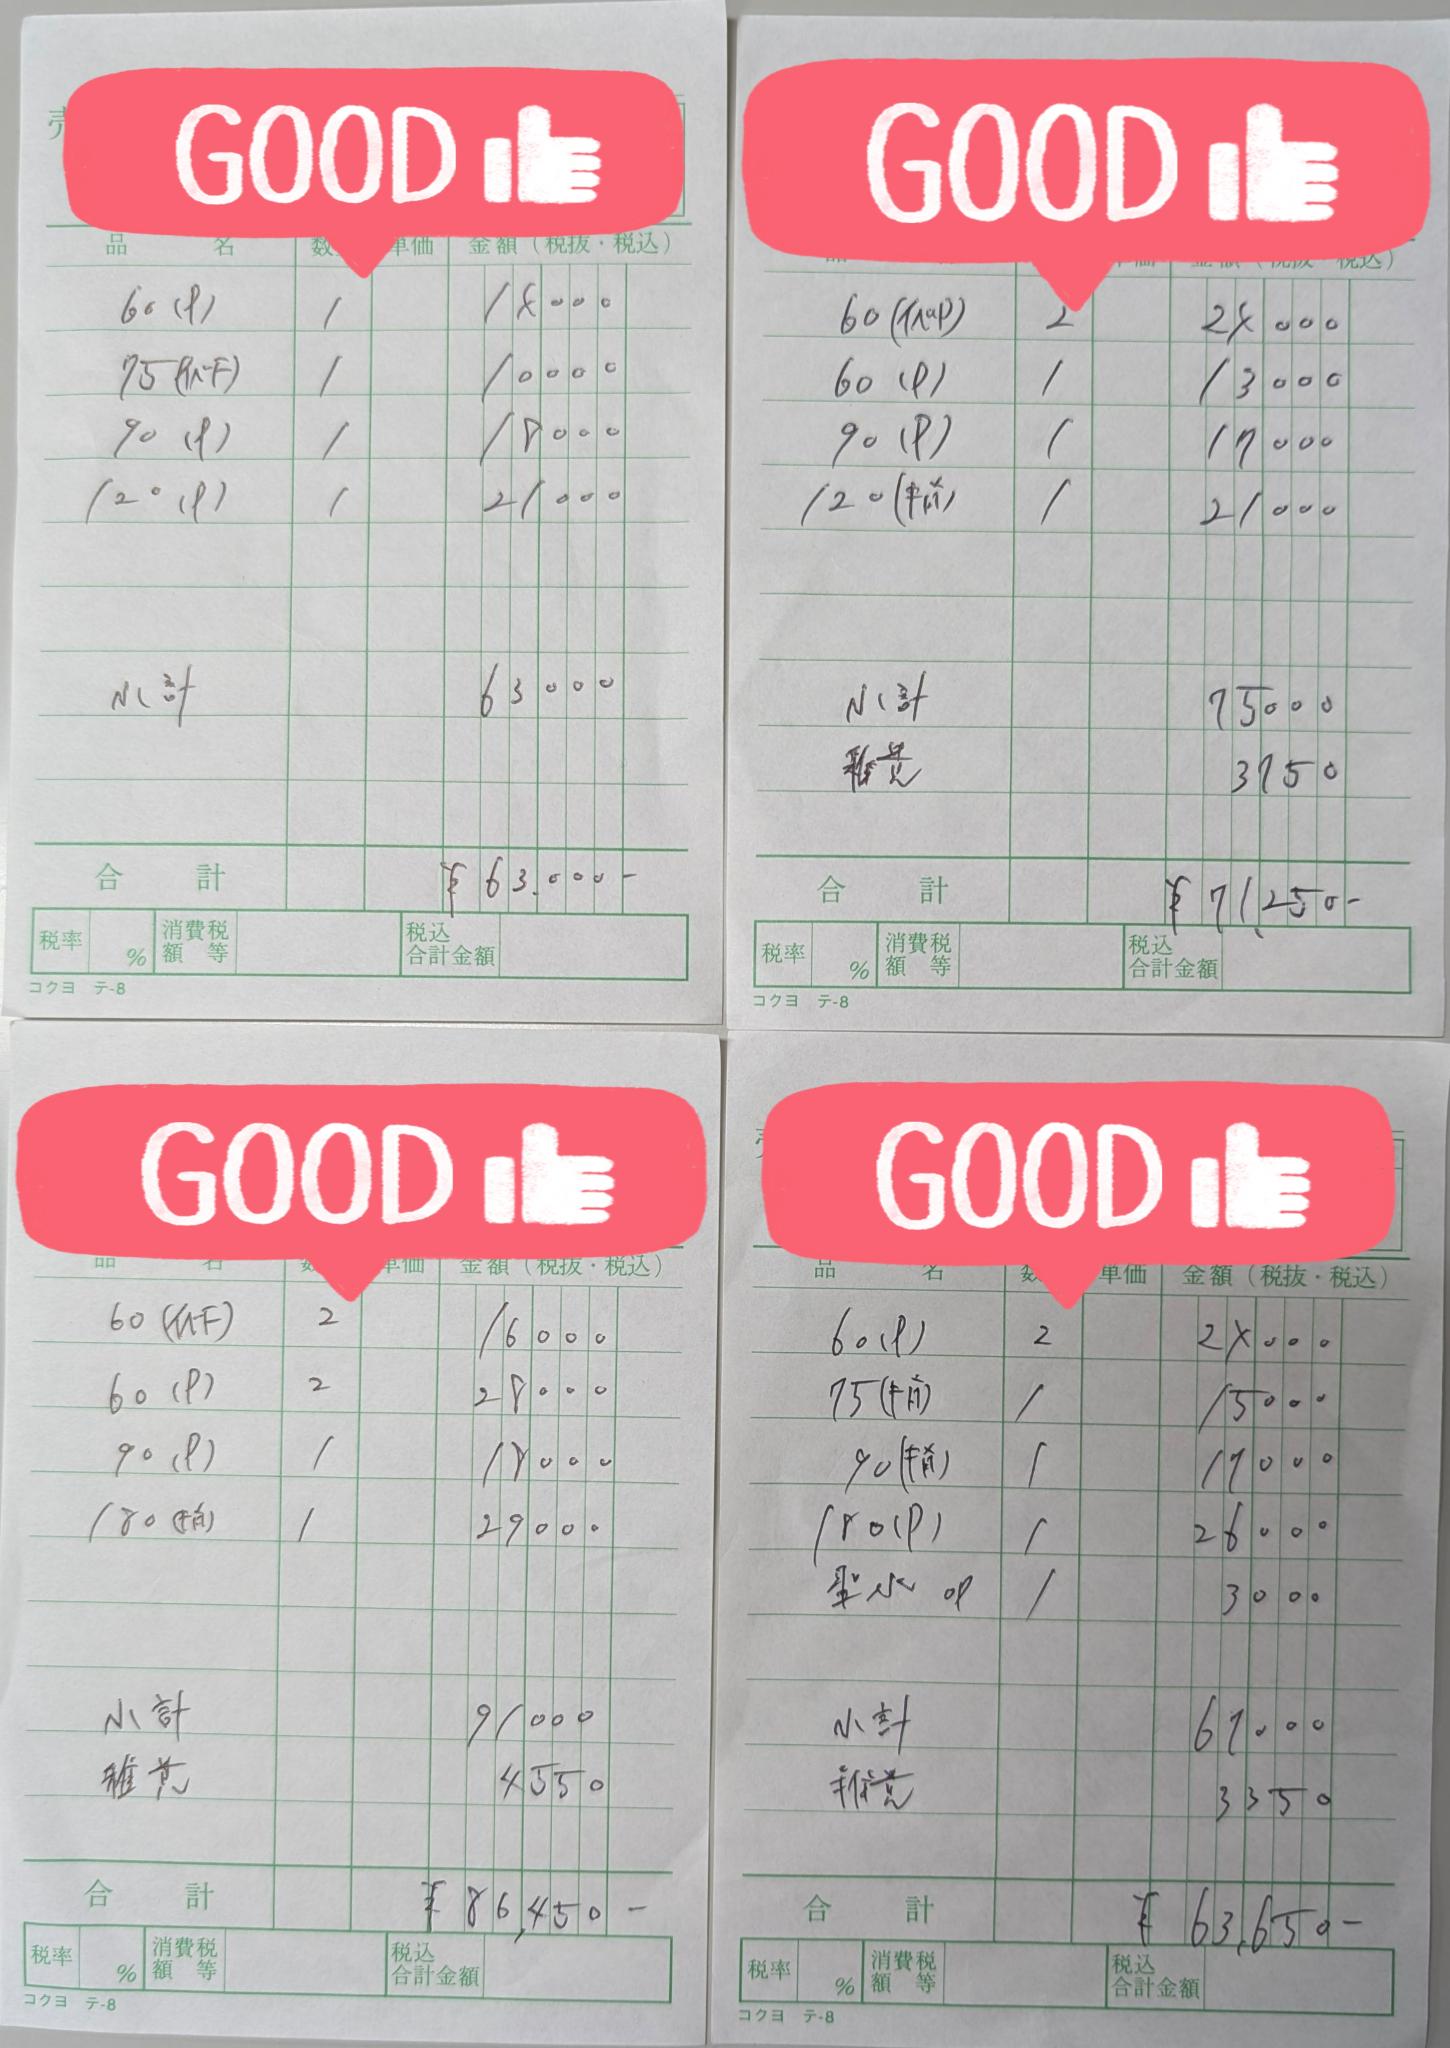 売
GOOD
品名 数 単価 金額(税抜・税込)
60(P) 1 14000
75 1 10000
90(P) 1 18000
120(P) 1 21000
小計 63000
合計 ¥63,000-
税率 % 消費税額等 税込合計金額
コクヨ テ-8
GOOD
金額(税抜・税込)
60 2 24000
60(P) 1 13000
90(P) 1 17000
120(精) 1 21000
小計 75000
雑費 3750
合計 ¥71,250-
税率 % 消費税額等 税込合計金額
コクヨ テ-8
GOOD
品名 数 単価 金額(税抜・税込)
60 2 16000
60(P) 2 28000
90(P) 1 18000
180(精) 1 29000
小計 91000
雑費 4550
合計 ¥86,450-
税率 % 消費税額等 税込合計金額
コクヨ テ-8
GOOD
品名 数 単価 金額(税抜・税込)
60(P) 2 24000
75(精) 1 15000
90(精) 1 17000
180(P) 1 26000
聖水 op 1 3000
小計 67000
雑費 3350
合計 ¥63,650-
税率 % 消費税額等 税込合計金額
コクヨ テ-8